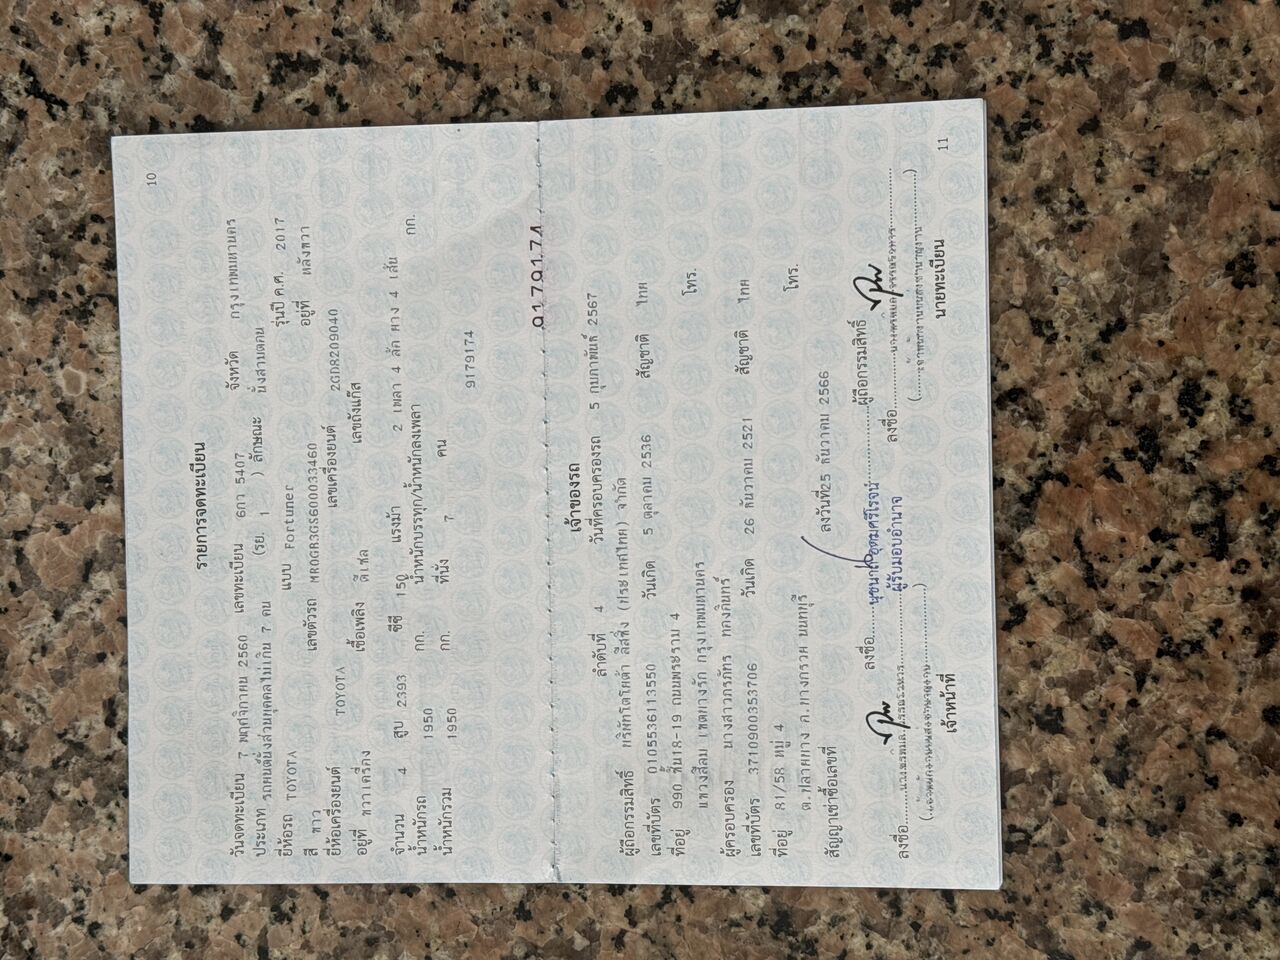 10
รายการจดทะเบียน
วันจดทะเบียน 7 พฤศจิกายน 2560 เลขทะเบียน 6กว 5407 จังหวัด กรุงเทพมหานคร
ประเภท รถยนต์นั่งส่วนบุคคลไม่เกิน 7 คน (รย. 1 ) ลักษณะ นั่งสามตอน
ยี่ห้อรถ TOYOTA แบบ Fortuner รุ่นปี ค.ศ. 2017
สี ขาว เลขตัวรถ MR0GR3GS600033460 อยู่ที่ หลังขวา
ยี่ห้อเครื่องยนต์ TOYOTA เลขเครื่องยนต์ 2GD8209040
อยู่ที่ ขวาเครื่อง เชื้อเพลิง ดีเซล เลขถังแก๊ส
จำนวน 4 สูบ 2393 ซีซี 150 แรงม้า 2 เพลา 4 ล้อ ยาง 4 เส้น
น้ำหนักรถ 1950 กก. น้ำหนักบรรทุก/น้ำหนักลงเพลา กก.
น้ำหนักรวม 1950 กก. ที่นั่ง 7 คน
9179174
9179174
เจ้าของรถ
ลำดับที่ 4 วันที่ครอบครองรถ 5 กุมภาพันธ์ 2567
ผู้ถือกรรมสิทธิ์ บริษัทโตโยต้า ลีสซิ่ง (ประเทศไทย) จำกัด
เลขที่บัตร 0105536113550 วันเกิด 5 ตุลาคม 2536 สัญชาติ ไทย
ที่อยู่ 990 ชั้น18-19 ถนนพระราม 4 โทร.
แขวงสีลม เขตบางรัก กรุงเทพมหานคร
ผู้ครอบครอง นางสาวภรภัทร ทองอินทร์
เลขที่บัตร 3710900353706 วันเกิด 26 ธันวาคม 2521 สัญชาติ ไทย
ที่อยู่ 81/58 หมู่ 4 โทร.
ต.ปลายบาง อ.บางกรวย นนทบุรี
สัญญาเช่าซื้อเลขที่ ลงวันที่25 ธันวาคม 2566
ลงชื่อ ผู้ถือกรรมสิทธิ์
ผู้รับมอบอำนาจ
ลงชื่อ ลงชื่อ
เจ้าหน้าที่ นายทะเบียน
11